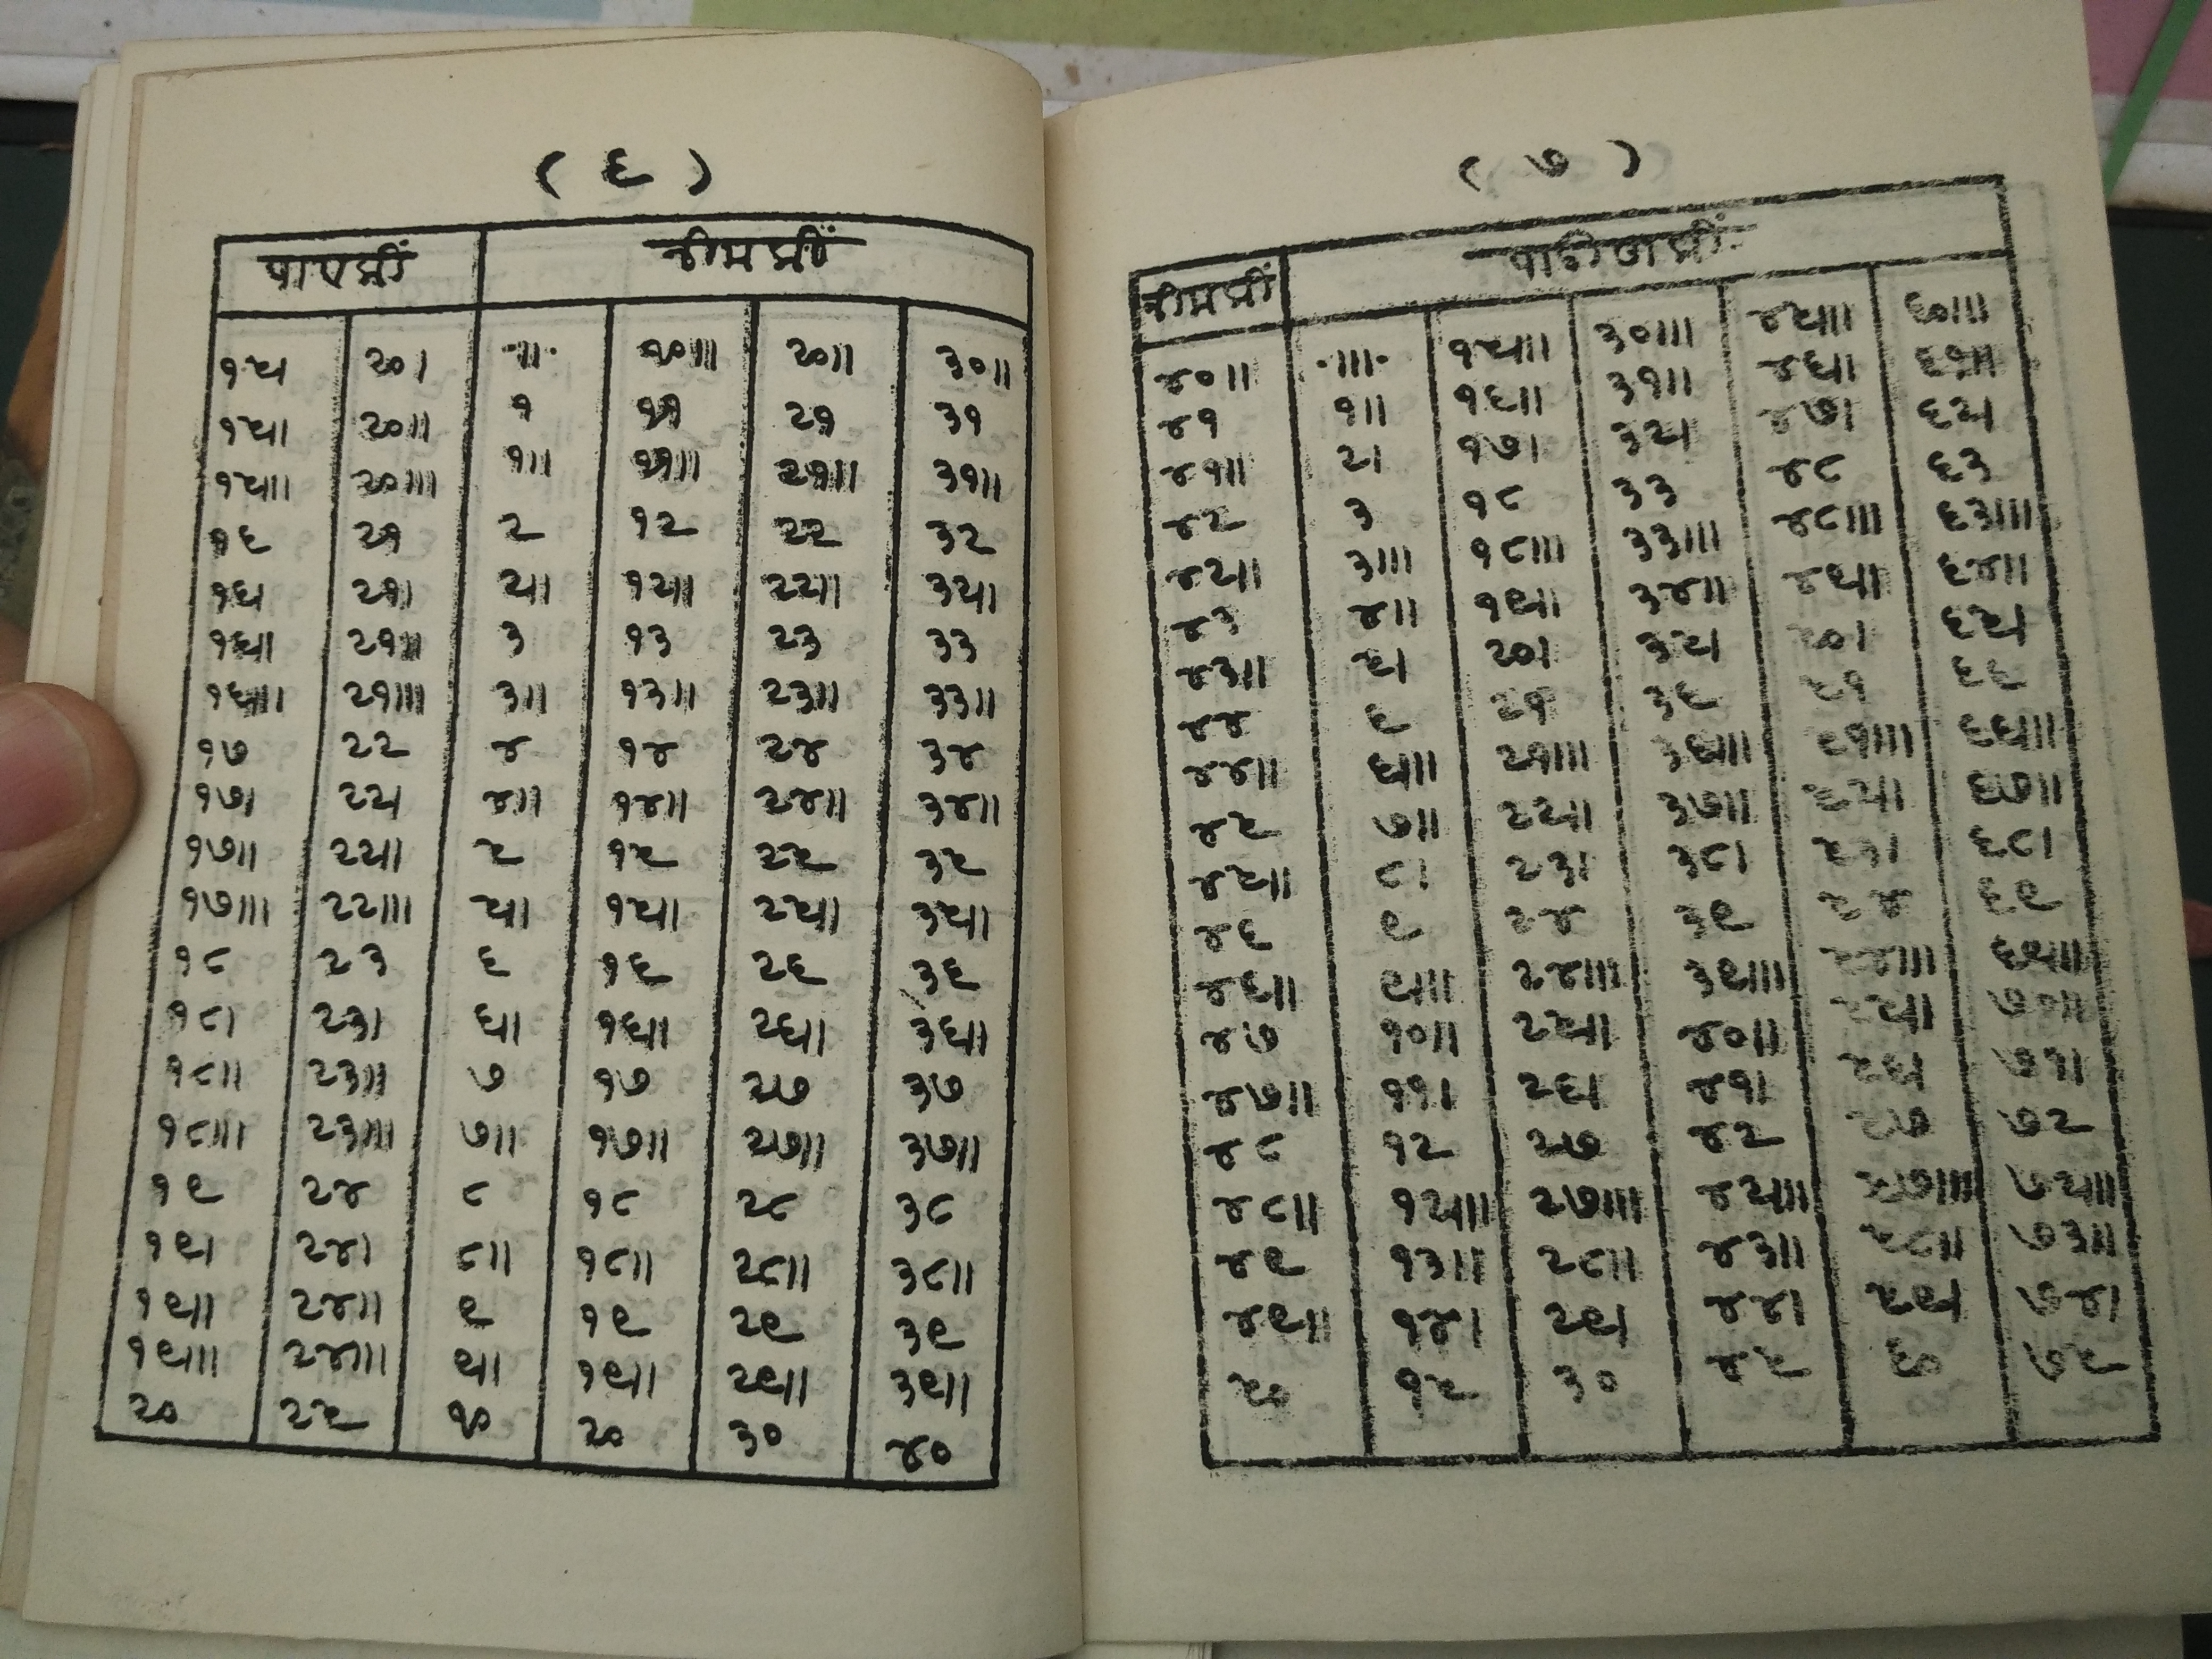 ( ६ )
𑘢𑘰𑘪𑘎𑘲𑘽 𑘡𑘲𑘦𑘎𑘲𑘽
१५। २०। ·॥· १०॥ २०॥ ३०॥
१५॥ २०॥ १ ११ २१ ३१
१५॥। २०॥। १॥ ११॥ २१॥ ३१॥
१६ २१ २ १२ २२ ३२
१६। २१। २॥ १२॥ २२॥ ३२॥
१६॥ २१॥ ३ १३ २३ ३३
१६॥। २१॥। ३॥ १३॥ २३॥ ३३॥
१७ २२ ४ १४ २४ ३४
१७। २२। ४॥ १४॥ २४॥ ३४॥
१७॥ २२॥ ५ १५ २५ ३५
१७॥। २२॥। ५॥ १५॥ २५॥ ३५॥
१८ २३ ६ १६ २६ ३६
१८। २३। ६॥ १६॥ २६॥ ३६॥
१८॥ २३॥ ७ १७ २७ ३७
१८॥। २३॥। ७॥ १७॥ २७॥ ३७॥
१९ २४ ८ १८ २८ ३८
१९। २४। ८॥ १८॥ २८॥ ३८॥
१९॥ २४॥ ९ १९ २९ ३९
१९॥। २४॥। ९॥ १९॥ २९॥ ३९॥
२० २५ १० २० ३० ४०
( ७ )
𑘡𑘲𑘦𑘎𑘲𑘽 𑘢𑘰𑘄𑘜𑘎𑘲𑘽
४०॥ ·॥।· १५॥। ३०॥। ४५॥। ६०॥।
४१ १॥ १६॥ ३१॥ ४६॥ ६१॥
४१॥ २। १७। ३२। ४७। ६२।
४२ ३ १८ ३३ ४८ ६३
४२॥ ३॥। १८॥। ३३॥। ४८॥। ६३॥।
४३ ४॥ १९॥ ३४॥ ४९॥ ६४॥
४३॥ ५। २०। ३५। ५०। ६५।
४४ ६ २१ ३६ ५१ ६६
४४॥ ६॥। २१॥। ३६॥। ५१॥। ६६॥।
४५ ७॥ २२॥ ३७॥ ५२॥ ६७॥
४५॥ ८। २३। ३८। ५३। ६८।
४६ ९ २४ ३९ ५४ ६९
४६॥ ९॥। २४॥। ३९॥। ५४॥। ६९॥।
४७ १०॥ २५॥ ४०॥ ५५॥ ७०॥
४७॥ ११। २६। ४१। ५६। ७१।
४८ १२ २७ ४२ ५७ ७२
४८॥ १२॥। २७॥। ४२॥। ५७॥। ७२॥।
४९ १३॥ २८॥ ४३॥ ५८॥ ७३॥
४९॥ १४। २९। ४४। ५९। ७४।
५० १५ ३० ४५ ६० ७५